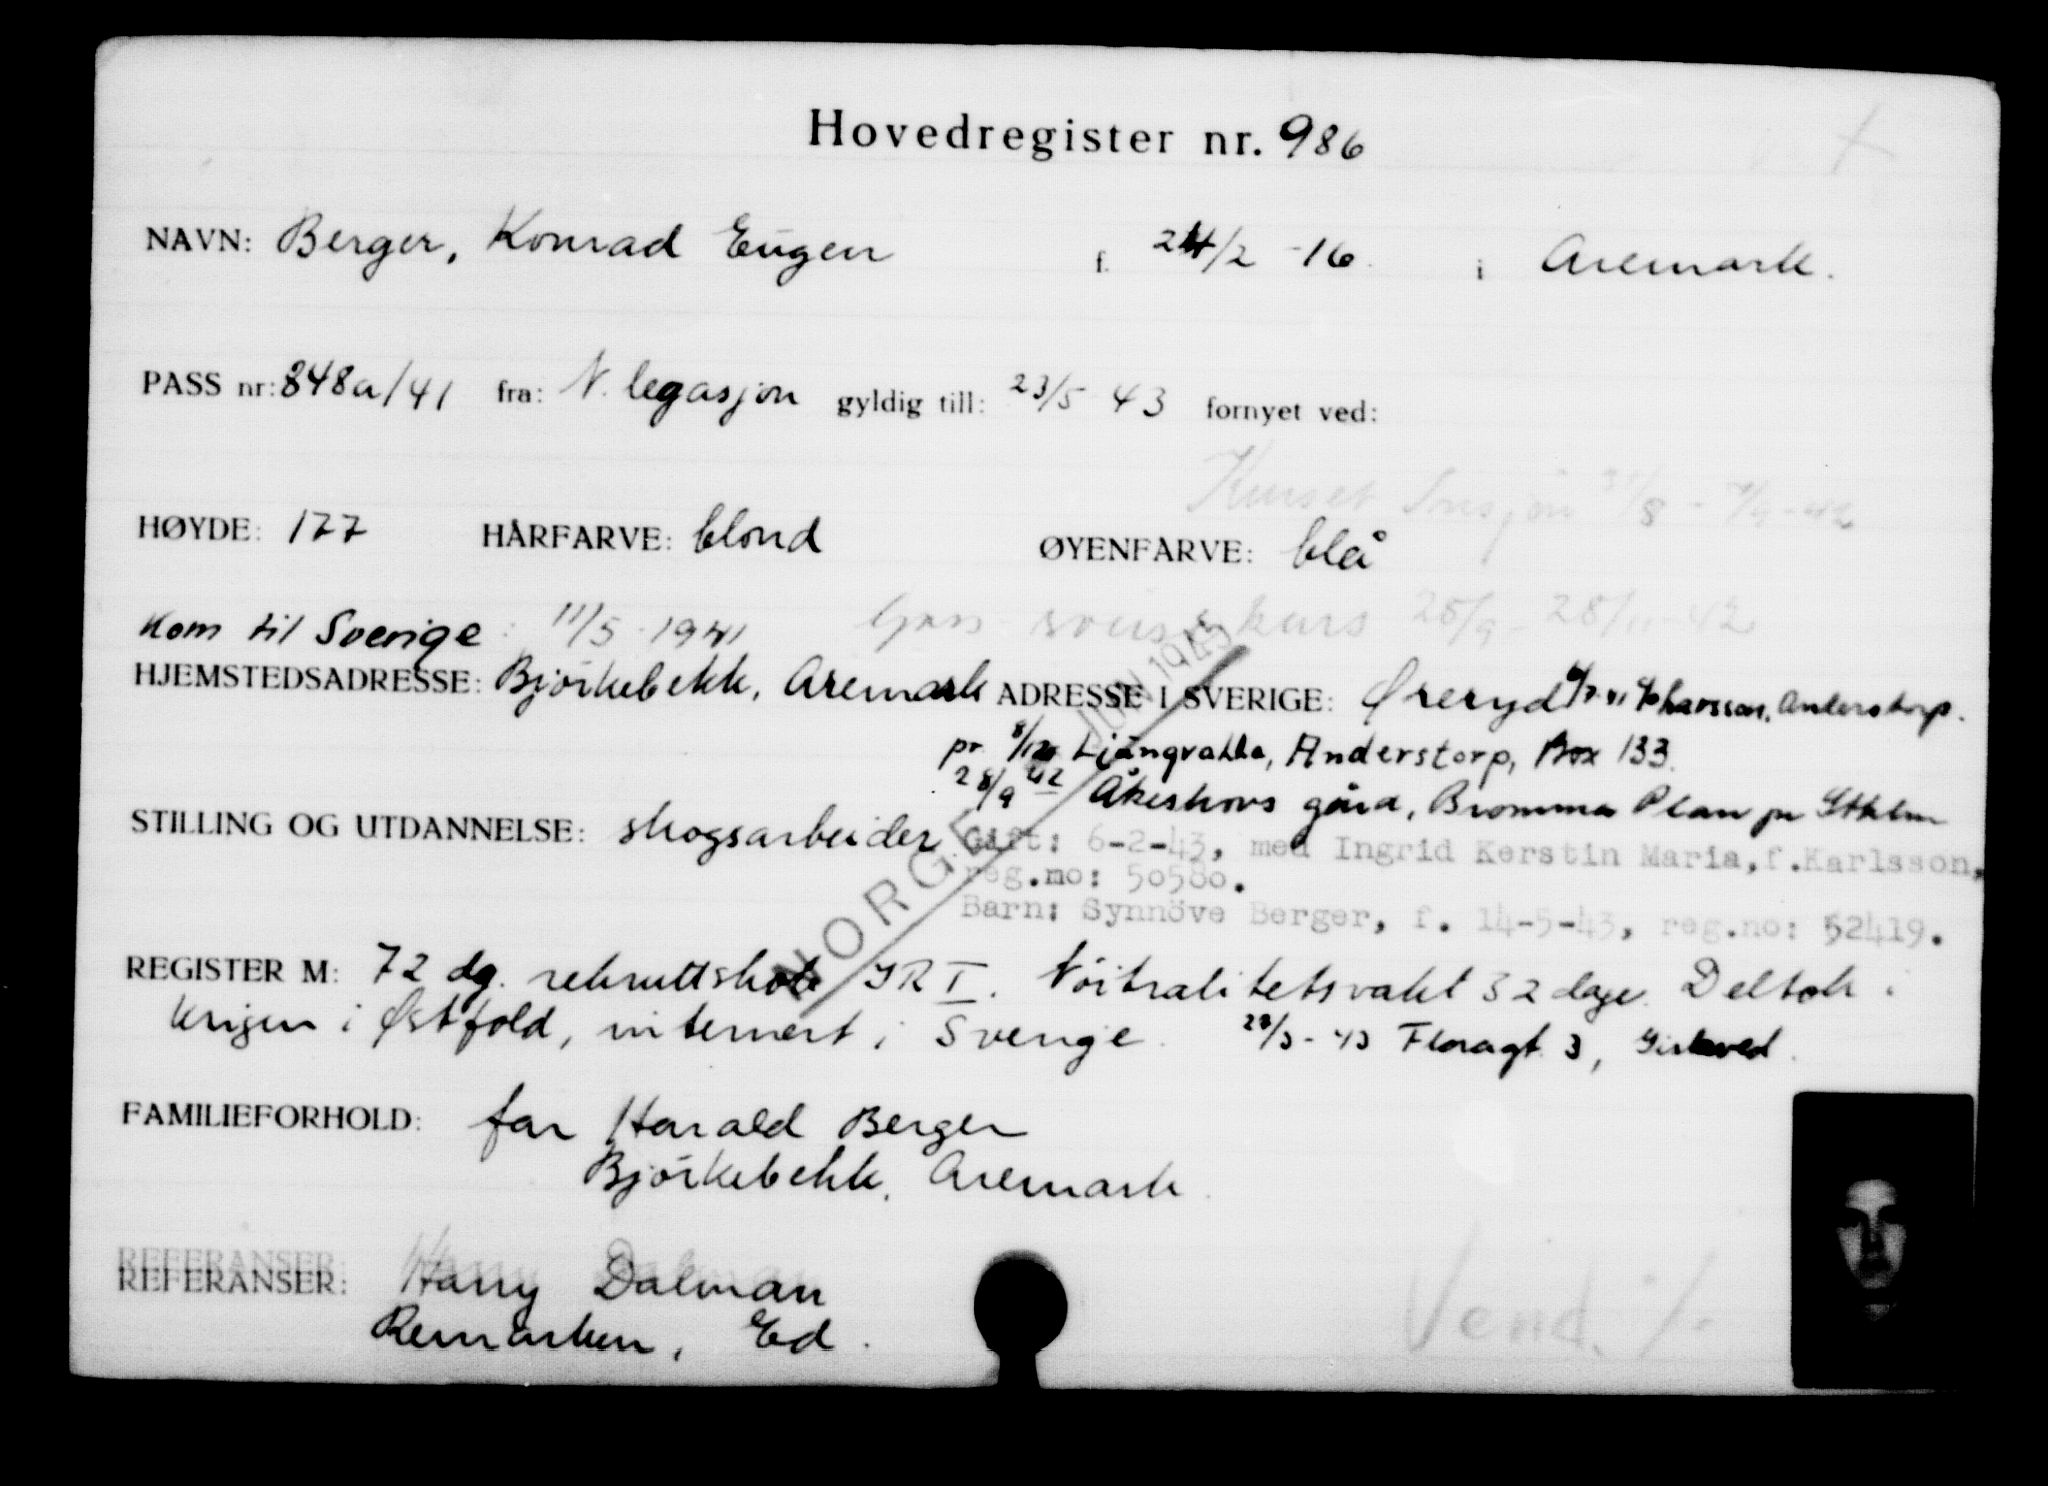 Hovedregister nr. 986
NAVN: Berger, Konrad Eugen f. 24/2 -16. i Aremark.
PASS nr: 848a/41 fra: N. legasjon gyldig till: 23/5 43 fornyet ved:
Kurset 31/8 - 42
HØYDE: 177 HÅRFARVE: blond ØYENFARVE: blå
Kom til Sverige: 11/5 1941 kurs 25/9 - 28/11 - 42
HJEMSTEDSADRESSE: Björkebekk, Aremark ADRESSE I SVERIGE: Øreryd Anderstorp.
pr Anderstorp, Box 133.
28/9 42 Åkeshovs gård, Bromma Plan pr Sthlm
STILLING OG UTDANNELSE: skogsarbeider
Gift: 6-2-43, med Ingrid Kerstin Maria, f. Karlsson,
reg.no: 50580.
Barn: Synnöve Berger, f. 14-5-43, reg.no: 52419.
NORGE JUN 1945
REGISTER M: 72 dg. rekruttskole IR I. Nöitralitetsvakt 32 dage. Deltok i
krigen i Østfold, internert i Sverige. - 43 3,
FAMILIEFORHOLD: far Harald Berger
Björkebekk, Aremark.
REFERANSER: Harry Dalman
Remarken, Ed.
Vend. ./.